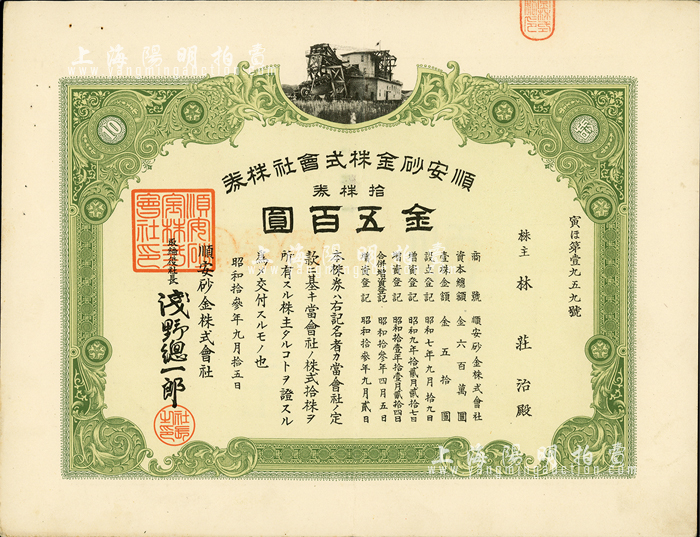 順安砂金株式會社株券
拾株券
金五百圓
10
寅ほ第壹九五九號
株主 林莊治殿
商號 順安砂金株式會社
資本總額 金六百萬圓
壹株金額 金五拾圓
設立登記 昭和七年九月拾九日
增資登記 昭和九年拾貳月貳拾七日
增資登記 昭和拾壹年拾壹月貳拾四日
合併增資登記 昭和拾參年四月五日
增資登記 昭和拾參年九月貳日
本株券ハ右記名者カ當會社ノ定
款ニ基キ當會社ノ株式拾株ヲ
所有スル株主タルコトヲ證スル
爲メ交付スルモノ也
昭和拾參年九月拾五日
順安砂金株式會社
取締役社長 淺野總一郎
順安砂金株式會社印
社長之印
上海陽明拍賣
Yangmingauction.com
上海陽明拍賣
Yangmingauction.com
上海陽明拍賣
Yangmingauction.com